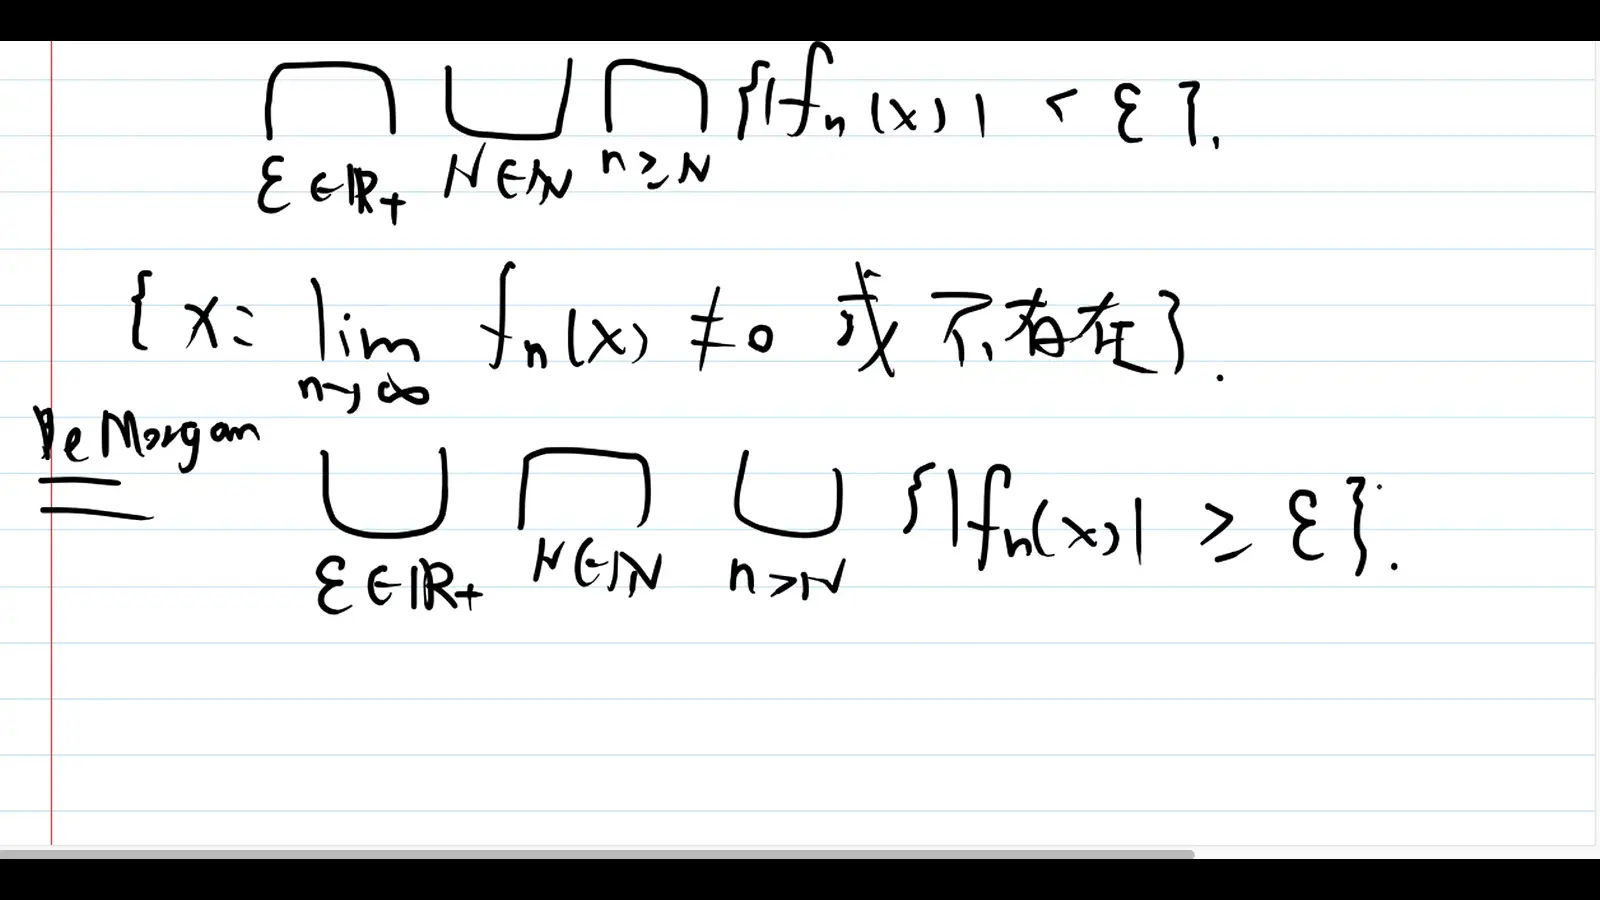 ⋂_{ε∈ℝ₊} ⋃_{N∈ℕ} ⋂_{n≥N} {|fₙ(x)| < ε}.
{x: lim_{n→∞} fₙ(x) ≠ 0 或不存在}.
De Morgan
= ⋃_{ε∈ℝ₊} ⋂_{N∈ℕ} ⋃_{n>N} {|fₙ(x)| ≥ ε}.